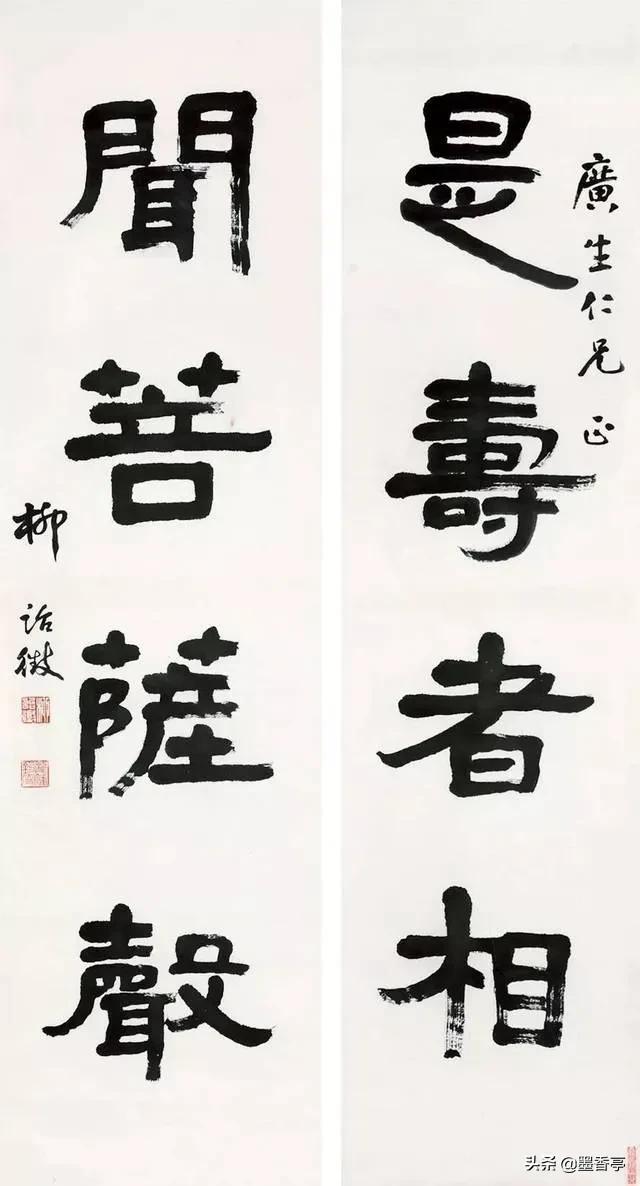 廣生仁兄 正
是壽者相
聞菩薩聲
柳詒徵
头条 @墨香亭